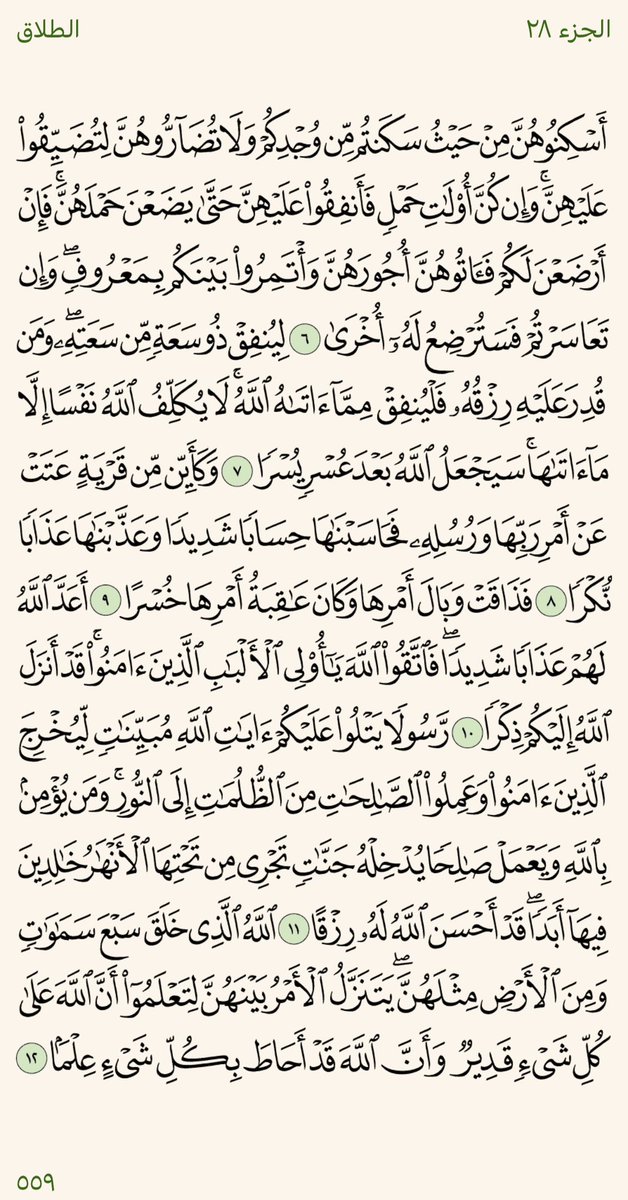 الجزء ٢٨
الطلاق
أَسۡكِنُوهُنَّ مِنۡ حَيۡثُ سَكَنتُم مِّن وُجۡدِكُمۡ وَلَا تُضَآرُّوهُنَّ لِتُضَيِّقُواْ
عَلَيۡهِنَّۚ وَإِن كُنَّ أُوْلَٰتِ حَمۡلٖ فَأَنفِقُواْ عَلَيۡهِنَّ حَتَّىٰ يَضَعۡنَ حَمۡلَهُنَّۚ فَإِنۡ
أَرۡضَعۡنَ لَكُمۡ فَـَٔاتُوهُنَّ أُجُورَهُنَّ وَأۡتَمِرُواْ بَيۡنَكُم بِمَعۡرُوفٖۖ وَإِن
تَعَاسَرۡتُمۡ فَسَتُرۡضِعُ لَهُۥٓ أُخۡرَىٰ ٦ لِيُنفِقۡ ذُو سَعَةٖ مِّن سَعَتِهِۦۖ وَمَن
قُدِرَ عَلَيۡهِ رِزۡقُهُۥ فَلۡيُنفِقۡ مِمَّآ ءَاتَىٰهُ ٱللَّهُۚ لَا يُكَلِّفُ ٱللَّهُ نَفۡسًا إِلَّا
مَآ ءَاتَىٰهَاۚ سَيَجۡعَلُ ٱللَّهُ بَعۡدَ عُسۡرٖ يُسۡرٗا ٧ وَكَأَيِّن مِّن قَرۡيَةٍ عَتَتۡ
عَنۡ أَمۡرِ رَبِّهَا وَرُسُلِهِۦ فَحَاسَبۡنَٰهَا حِسَابٗا شَدِيدٗا وَعَذَّبۡنَٰهَا عَذَابٗا
نُّكۡرٗا ٨ فَذَاقَتۡ وَبَالَ أَمۡرِهَا وَكَانَ عَٰقِبَةُ أَمۡرِهَا خُسۡرًا ٩ أَعَدَّ ٱللَّهُ
لَهُمۡ عَذَابٗا شَدِيدٗاۖ فَٱتَّقُواْ ٱللَّهَ يَٰٓأُوْلِي ٱلۡأَلۡبَٰبِ ٱلَّذِينَ ءَامَنُواْۚ قَدۡ أَنزَلَ
ٱللَّهُ إِلَيۡكُمۡ ذِكۡرٗا ١٠ رَّسُولٗا يَتۡلُواْ عَلَيۡكُمۡ ءَايَٰتِ ٱللَّهِ مُبَيِّنَٰتٖ لِّيُخۡرِجَ
ٱلَّذِينَ ءَامَنُواْ وَعَمِلُواْ ٱلصَّٰلِحَٰتِ مِنَ ٱلظُّلُمَٰتِ إِلَى ٱلنُّورِۚ وَمَن يُؤۡمِنۢ
بِٱللَّهِ وَيَعۡمَلۡ صَٰلِحٗا يُدۡخِلۡهُ جَنَّٰتٖ تَجۡرِي مِن تَحۡتِهَا ٱلۡأَنۡهَٰرُ خَٰلِدِينَ
فِيهَآ أَبَدٗاۖ قَدۡ أَحۡسَنَ ٱللَّهُ لَهُۥ رِزۡقًا ١١ ٱللَّهُ ٱلَّذِي خَلَقَ سَبۡعَ سَمَٰوَٰتٖ
وَمِنَ ٱلۡأَرۡضِ مِثۡلَهُنَّۖ يَتَنَزَّلُ ٱلۡأَمۡرُ بَيۡنَهُنَّ لِتَعۡلَمُوٓاْ أَنَّ ٱللَّهَ عَلَىٰ
كُلِّ شَيۡءٖ قَدِيرٞ وَأَنَّ ٱللَّهَ قَدۡ أَحَاطَ بِكُلِّ شَيۡءٍ عِلۡمَۢا ١٢
٥٥٩